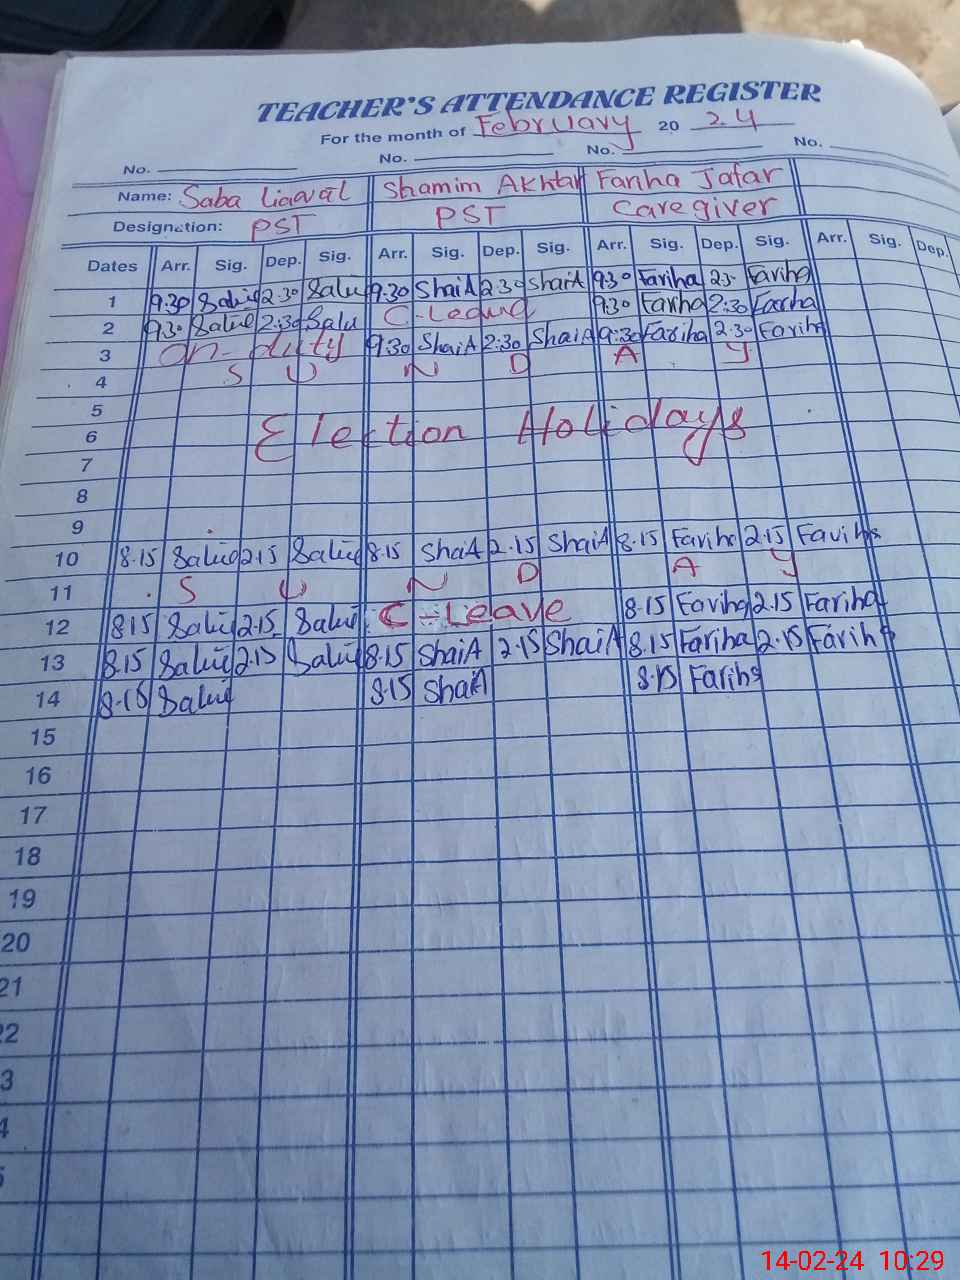 TEACHER'S ATTENDANCE REGISTER
For the month of February 20 24
No. No. No. No.
Name: Saba Liaqat Shamim Akhtar Fariha Jafar
Designation: PST PST Caregiver
Dates Arr. Sig. Dep. Sig. Arr. Sig. Dep. Sig. Arr. Sig. Dep. Sig. Arr. Sig. Dep.
1 9:30 2:30 9:30 ShaiA 2:30 ShaiA 9:30 Fariha 2:30 Fariha
2 9:30 2:30 C-Leave 9:30 Fariha 2:30 Fariha
3 On-duty 9:30 ShaiA 2:30 ShaiA 9:30 Fariha 2:30 Fariha
4 S U N D A Y
5
6 Election Holidays
7
8
9
10 8.15 2.15 8.15 ShaiA 2.15 ShaiA 8.15 Fariha 2.15 Fariha
11 S U N D A Y
12 8.15 2.15 C-Leave 8.15 Fariha 2.15 Fariha
13 8.15 2.15 8.15 ShaiA 2.15 ShaiA 8.15 Fariha 2.15 Fariha
14 8.15 8.15 ShaiA 8.15 Fariha
15
16
17
18
19
20
21
22
3
4
5
14-02-24 10:29